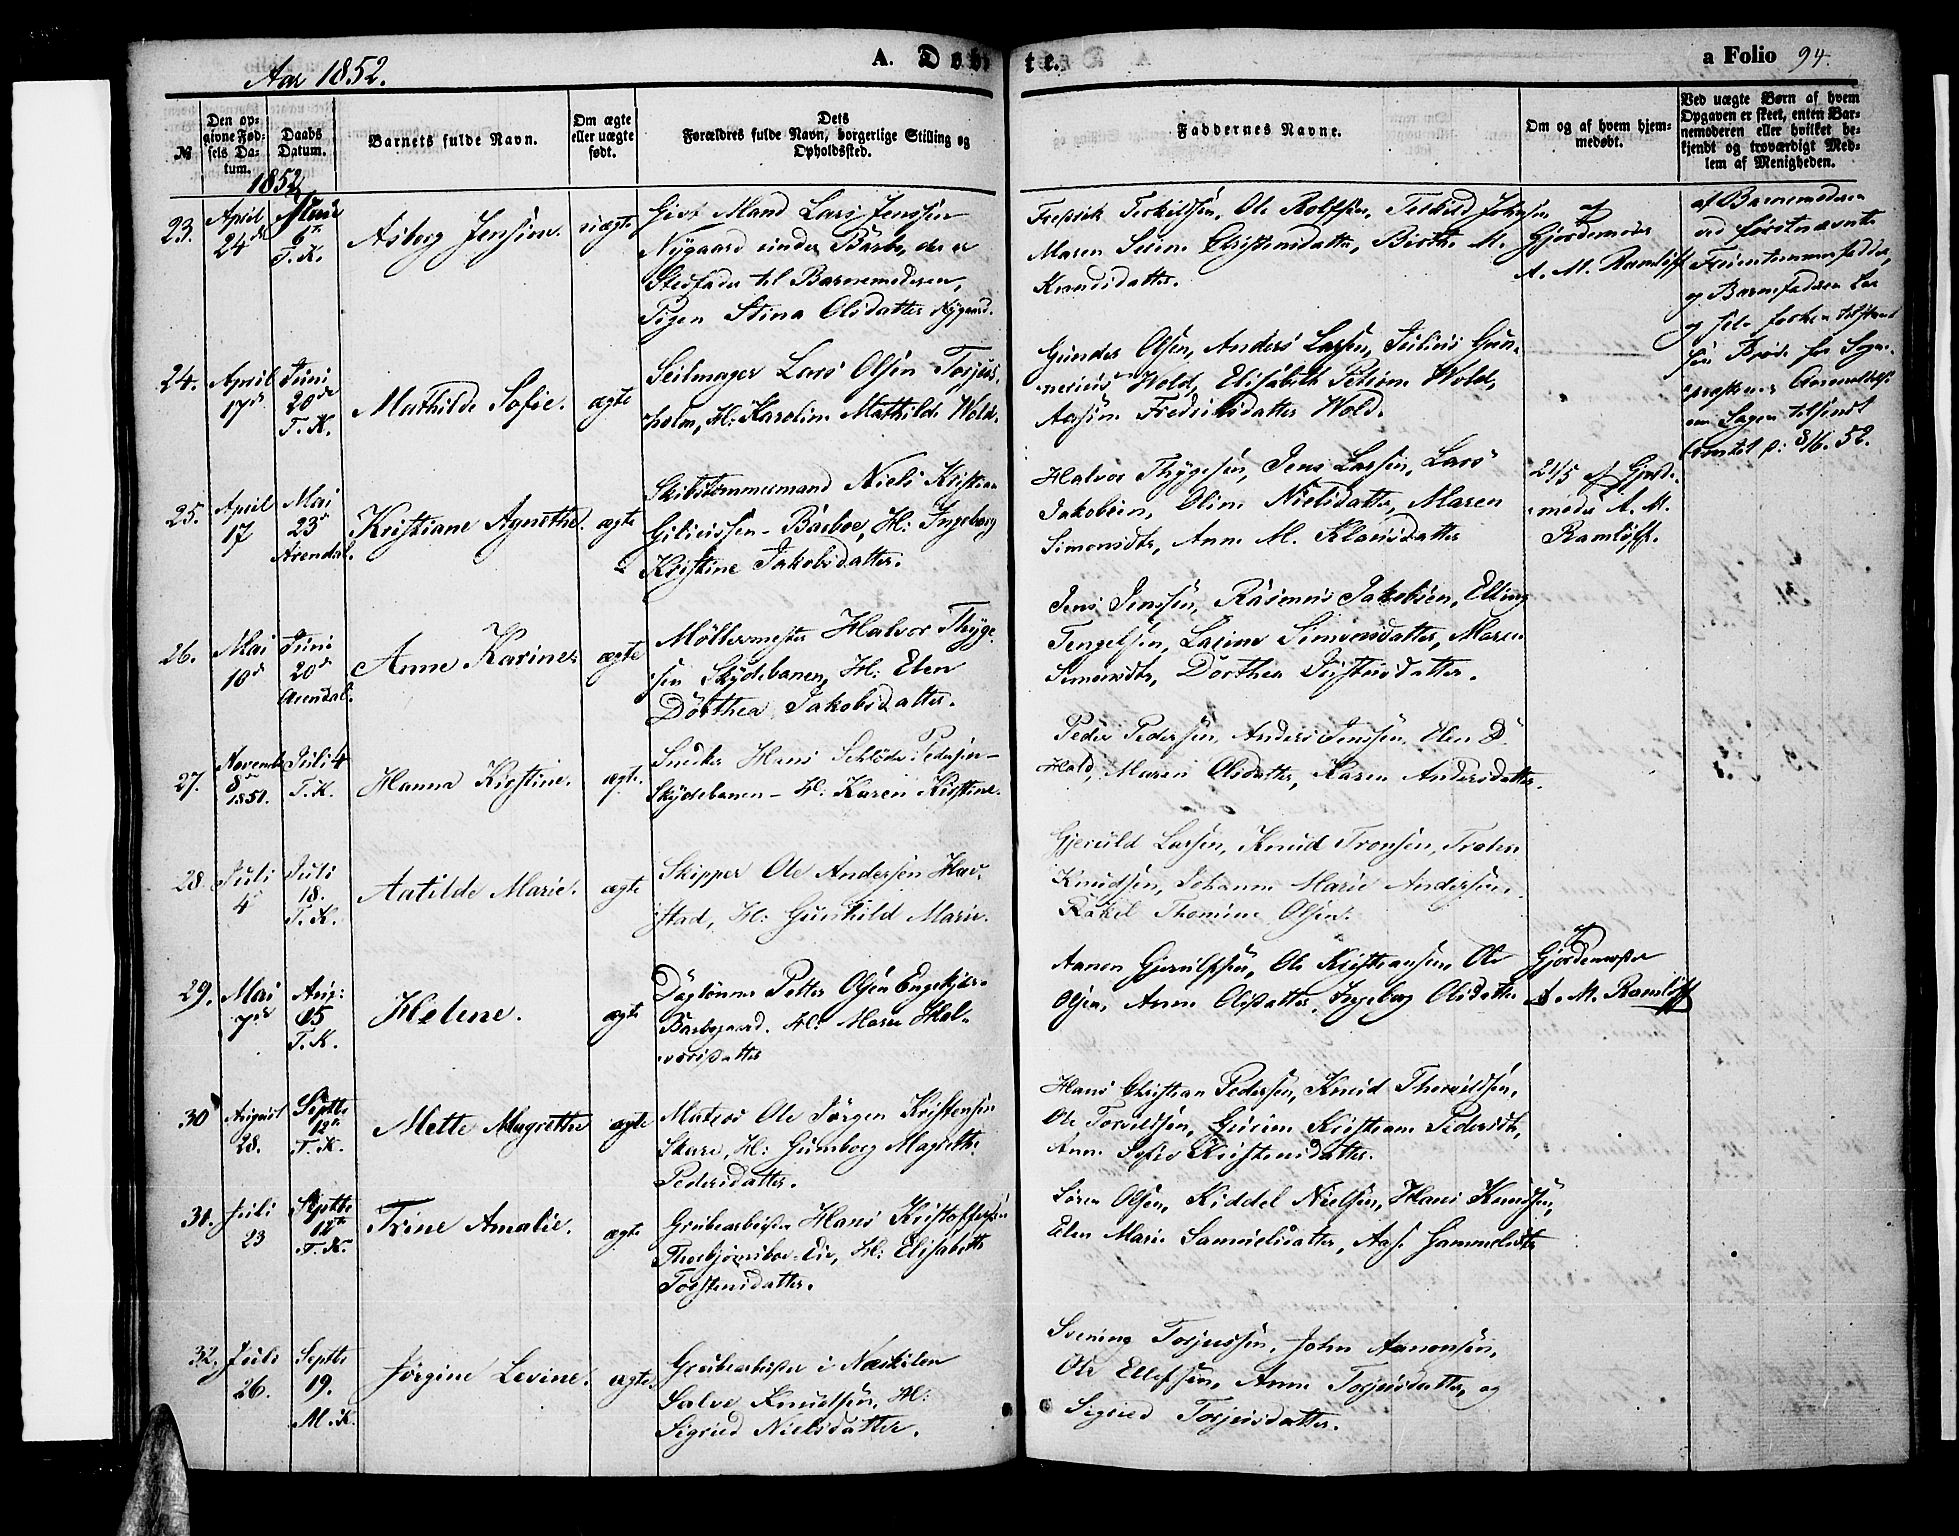 Aar 1852.
A. Døbte.
a Folio 94.
№
Den op-
givne Fød-
sels Da-
tum.
Daabs
Datum.
Barnets fulde Navn.
Om ægte
eller uægte
født.
Dets
Forældres fulde Navn, borgerlige Stilling og
Opholdssted.
Faddernes Navne.
Om og af hvem hjem-
medøbt.
Ved uægte Børn af hvem
Opgaven er skeet, enten Bar-
nemoderen eller hvilket be-
kjendt og troværdigt Med-
lem af Menigheden.
1852
23.
April
24de
Juni
6te
T. K.
Asborg Jensine.
uægte
Givt Mand Lars Jenssen
Nygaard under Barbo, der er
Stedfader til Barnemoderen,
Pigen Stina Olsdatter Nygaard.
Fredrik Terkildsen, Ole Rolfsen, Terkild Johnsen
Maren Serine Christensdatter, Birthe M.
Knudsdatter.
af
Gjordemoder
A. M. Ramløff
af Barnemoderen
ved førstnævnte
Fruentimmerfadder,
og Barnefaderen
p: 8/6. 52.
24.
April
17de
Juni
20de
T. K.
Mathilde Sofie.
ægte
Seilmager Lars Olsen Torjus-
holm, H: Karoline Mathilde Wold.
Gunder Olsen, Anders Larsen, Julius Gun-
nerius Wold, Elisabeth Petrine Wold,
Aasine Fredriksdatter Wold.
25.
April
17
Mai
23de
Arendal.
Kristiane Agnethe.
ægte
Skibstømmermand Niels Kristian
Giliussen - Barboe, H: Ingeborg
Kristine Jakobsdatter.
Halvor Thygesen, Jens Larsen, Lars
Jakobsen, Oline Nielsdatter, Maren
Simonsdtr, Anne M. Klausdatter
21/5 af Gjord-
moder A. M.
Ramløff.
26.
Mai
10de
Juni
20de
Arendal.
Anne Karine
ægte
Møllermester Halvor Thyge-
sen Skydebanen, H: Elen
Dorthea Jakobsdatter.
Jens Jenssen, Rasmus Jakobsen, Elling
Tengelsen, Lasine Simonsdatter, Maren
Simonsdtr, Dorthea Kristensdatter.
27.
Novemb
8de
1851.
Juli 4
T. K.
Hanna Kristine.
ægte.
Snedker Hans Schløde Pedersen -
Skydebanen - H: Karen Kristine.
Peder Pedersen, Anders Jenssen, Elen D.
Hald, Maren Olsdatter, Karen Andersdatter.
28
Juli
4
Juli
18.
T. K.
Aatilde Marie.
ægte
Skipper Ole Andersen Hav-
stad, H: Gunhild Marie.
Gjeruld Larsen, Knud Tronsen, Traten
Knudsen, Johanne Marie Andersen.
Rakel Thomine Olsen.
29.
Mai
7de
Aug:
15
T. K.
Helene.
ægte
Daglønner Petter Olsen Engekjær-
Barbogaard. H: Maren Hal-
vorsdatter
Aanon Gjerulfsen, Ole Kristiansen, Ole
Olsen, Anne Olsdatter, Ingeborg Olsdatter
af
Gjordemoder
A. M. Ramløff
30
August
28.
Septbr
12te
T. K.
Mette Magrethe
ægte
Matros Ole Jørgen Kristensen
Skare, H: Gunborg Magrethe
Pedersdatter.
Hans Christian Pedersen, Knud Thorvildsen,
Ole Torvildsen, Gurine Kristiane Pedersdtr,
Anne Sofie Kristensdatter.
31.
Juli
23
Septbr
12te
T. K.
Trine Amalie.
ægte
Grubearbeider Hans Kristoffersen
Thorbjørnsboe-Eie, H: Elisabeth
Torstensdatter.
Søren Olsen, Kiddel Nielsen, Hans Knudsen,
Elen Marie Samuelsdatter, Aase Gammelsdtr
32.
Juli
26.
Septbr
19.
M. K.
Jørgine Levine.
ægte.
Grubearbeider i Næskilen
Salve Knudsen, H:
Sigried Nielsdatter.
Svening Torjussen, John Aanonsen,
Ole Ellefsen, Anne Torjusdatter, og
Sigried Torjusdatter.